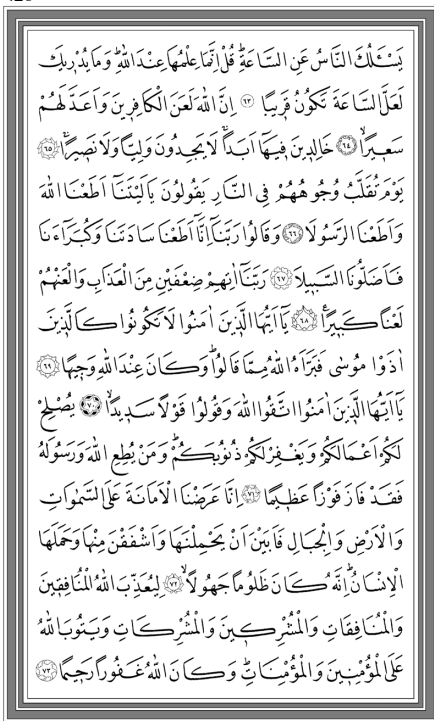 يَسْـَٔلُكَ النَّاسُ عَنِ السَّاعَةِۜ قُلْ اِنَّمَا عِلْمُهَا عِنْدَ اللّٰهِۜ وَمَا يُدْرٖيكَ
لَعَلَّ السَّاعَةَ تَكُونُ قَرٖيبًا ﴿٦٣﴾ اِنَّ اللّٰهَ لَعَنَ الْكَافِرٖينَ وَاَعَدَّ لَهُمْ
سَعٖيرًاۙ ﴿٦٤﴾ خَالِدٖينَ فٖيهَٓا اَبَدًاۚ لَا يَجِدُونَ وَلِيًّا وَلَا نَصٖيرًاۚ ﴿٦٥﴾
يَوْمَ تُقَلَّبُ وُجُوهُهُمْ فِي النَّارِ يَقُولُونَ يَا لَيْتَنَٓا اَطَعْنَا اللّٰهَ
وَاَطَعْنَا الرَّسُولَا ﴿٦٦﴾ وَقَالُوا رَبَّنَٓا اِنَّٓا اَطَعْنَا سَادَتَنَا وَكُبَرَٓاءَنَا
فَاَضَلُّونَا السَّبٖيلَا ﴿٦٧﴾ رَبَّنَٓا اٰتِهِمْ ضِعْفَيْنِ مِنَ الْعَذَابِ وَالْعَنْهُمْ
لَعْنًا كَبٖيرًا۟ ﴿٦٨﴾ يَٓا اَيُّهَا الَّذٖينَ اٰمَنُوا لَا تَكُونُوا كَالَّذٖينَ
اٰذَوْا مُوسٰى فَبَرَّاَهُ اللّٰهُ مِمَّا قَالُواۜ وَكَانَ عِنْدَ اللّٰهِ وَجٖيهًا ﴿٦٩﴾
يَٓا اَيُّهَا الَّذٖينَ اٰمَنُوا اتَّقُوا اللّٰهَ وَقُولُوا قَوْلًا سَدٖيدًاۙ ﴿٧٠﴾ يُصْلِحْ
لَكُمْ اَعْمَالَكُمْ وَيَغْفِرْ لَكُمْ ذُنُوبَكُمْۜ وَمَنْ يُطِعِ اللّٰهَ وَرَسُولَهُ
فَقَدْ فَازَ فَوْزًا عَظٖيمًا ﴿٧١﴾ اِنَّا عَرَضْنَا الْاَمَانَةَ عَلَى السَّمٰوَاتِ
وَالْاَرْضِ وَالْجِبَالِ فَاَبَيْنَ اَنْ يَحْمِلْنَهَا وَاَشْفَقْنَ مِنْهَا وَحَمَلَهَا
الْاِنْسَانُۜ اِنَّهُ كَانَ ظَلُومًا جَهُولًاۙ ﴿٧٢﴾ لِيُعَذِّبَ اللّٰهُ الْمُنَافِقٖينَ
وَالْمُنَافِقَاتِ وَالْمُشْرِكٖينَ وَالْمُشْرِكَاتِ وَيَتُوبَ اللّٰهُ
عَلَى الْمُؤْمِنٖينَ وَالْمُؤْمِنَاتِۜ وَكَانَ اللّٰهُ غَفُورًا رَحٖيمًا ﴿٧٣﴾